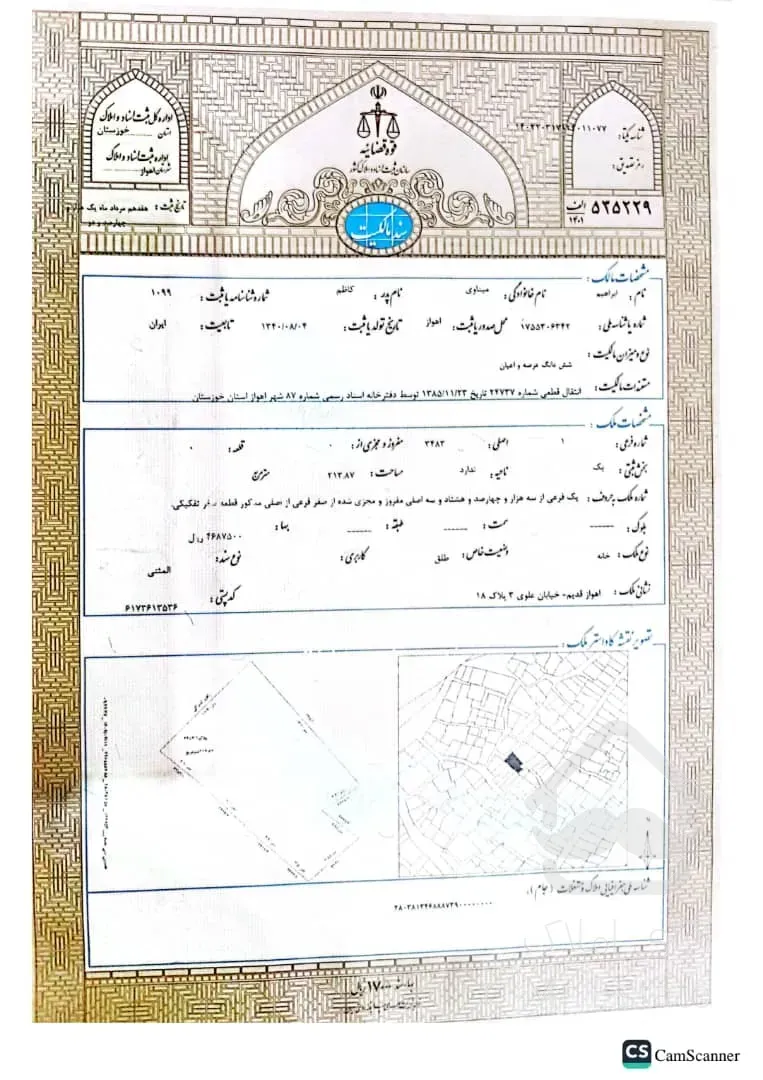 اداره کل ثبت اسناد و املاک
استان خوزستان
اداره ثبت اسناد و املاک
شهرستان اهواز
تاریخ ثبت : هفدهم مرداد ماه یک هزار
چهارصد و دو
قوه قضائیه
سازمان ثبت اسناد و املاک کشور
سند مالکیت
شناسه یکتا:
رمز تصدیق:
۵۲۵۲۲۹ الف
۱۴۰۱
مشخصات مالک :
نام : ابراهیم نام خانوادگی : میناوی نام پدر : کاظم شماره شناسنامه یا ثبت : ۱۰۹۹
شماره یا شناسه ملی : ۱۷۵۵۳۰۶۳۴۲ محل صدور یا ثبت : اهواز تاریخ تولد یا ثبت : ۱۳۴۰/۰۸/۰۴ تابعیت : ایران
نوع و میزان مالکیت :
شش دانگ عرصه و اعیان
مستندات مالکیت : انتقال قطعی شماره ۲۴۷۳۷ تاریخ ۱۳۸۵/۱۱/۲۳ توسط دفترخانه اسناد رسمی شماره ۸۷ شهر اهواز استان خوزستان
مشخصات ملک :
شماره فرعی : ۱ اصلی : ۳۴۸۳ مفروز و مجزی از : ۰ قطعه : ۰
بخش ثبتی : یک ناحیه : ندارد مساحت : ۲۱۳.۸۷ مترمربع
شماره ملک به حروف : یک فرعی از سه هزار و چهارصد و هشتاد و سه اصلی مفروز و مجزی شده از صفر فرعی از اصلی مذکور قطعه صفر تفکیکی.
بلوک : ------ سمت : ------ طبقه : ------ بها : ۴۶۸۷۵۰۰ ریال
نوع ملک : خانه وضعیت خاص : طلق کاربری : نوع سند : المثنی
نشانی ملک : اهواز قدیم- خیابان علوی ۳ پلاک ۱۸ کد پستی : ۶۱۷۳۶۱۳۵۳۶
تصویر نقشه کاداستر ملک :
شناسه ملی جغرافیایی املاک و مستغلات (جام) :
بهاء سند ۱۷۰۰۰ ریال
CS CamScanner